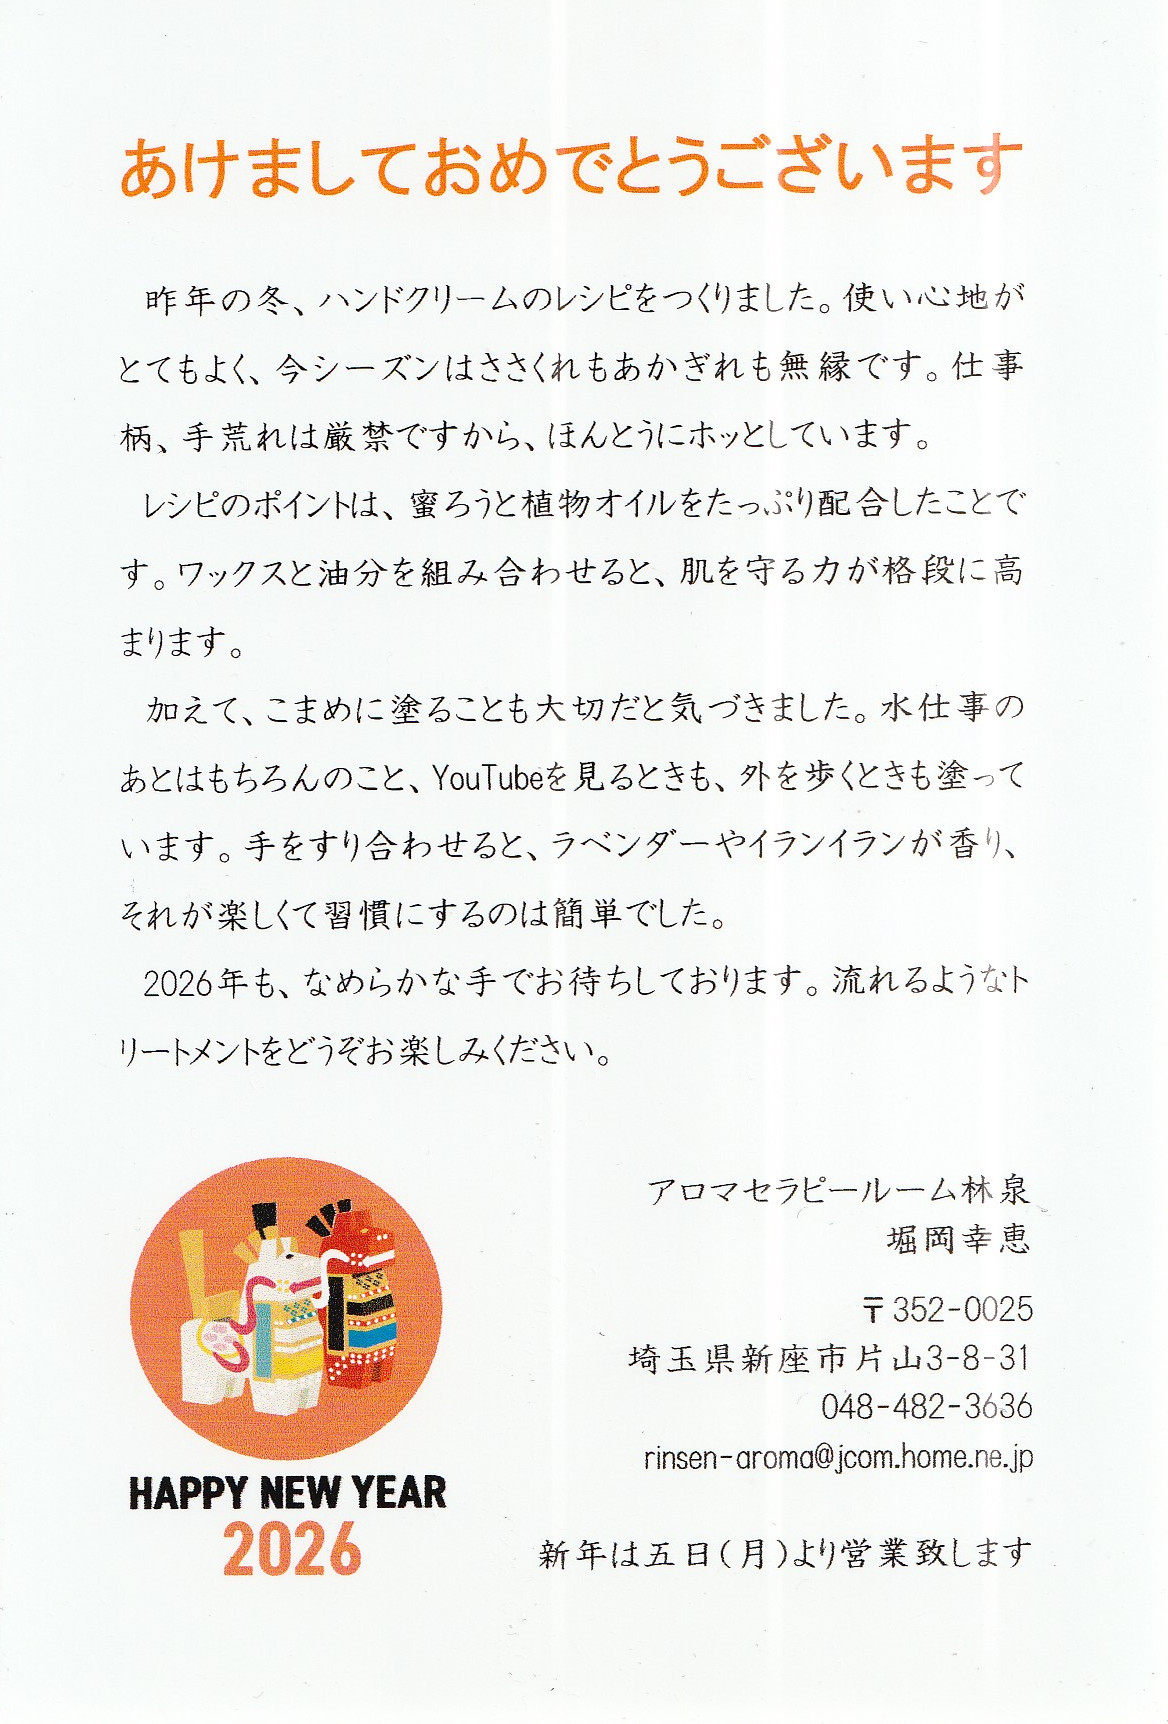 あけましておめでとうございます
昨年の冬、ハンドクリームのレシピをつくりました。使い心地が
とてもよく、今シーズンはささくれもあかぎれも無縁です。仕事
柄、手荒れは厳禁ですから、ほんとうにホッとしています。
レシピのポイントは、蜜ろうと植物オイルをたっぷり配合したことで
す。ワックスと油分を組み合わせると、肌を守る力が格段に高
まります。
加えて、こまめに塗ることも大切だと気づきました。水仕事の
あとはもちろんのこと、YouTubeを見るときも、外を歩くときも塗って
います。手をすり合わせると、ラベンダーやイランイランが香り、
それが楽しくて習慣にするのは簡単でした。
2026年も、なめらかな手でお待ちしております。流れるようなト
リートメントをどうぞお楽しみください。
アロマセラピールーム林泉
堀岡幸恵
〒352-0025
埼玉県新座市片山3-8-31
048-482-3636
rinsen-aroma@jcom.home.ne.jp
HAPPY NEW YEAR
2026
新年は五日(月)より営業致します